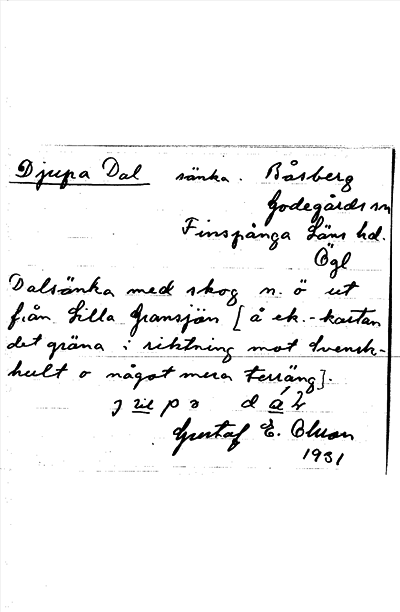 Djupa Dal sänka. Båsberg
Godegårds sn
Finspånga Läns hd.
Ögl
Dalsänka med skog n. ö ut
från Lilla Gransjön [å ek.-kartan
det gräna i riktning mot Svensk-
hult o något mera terräng].
Gustaf E. Olsson
1931